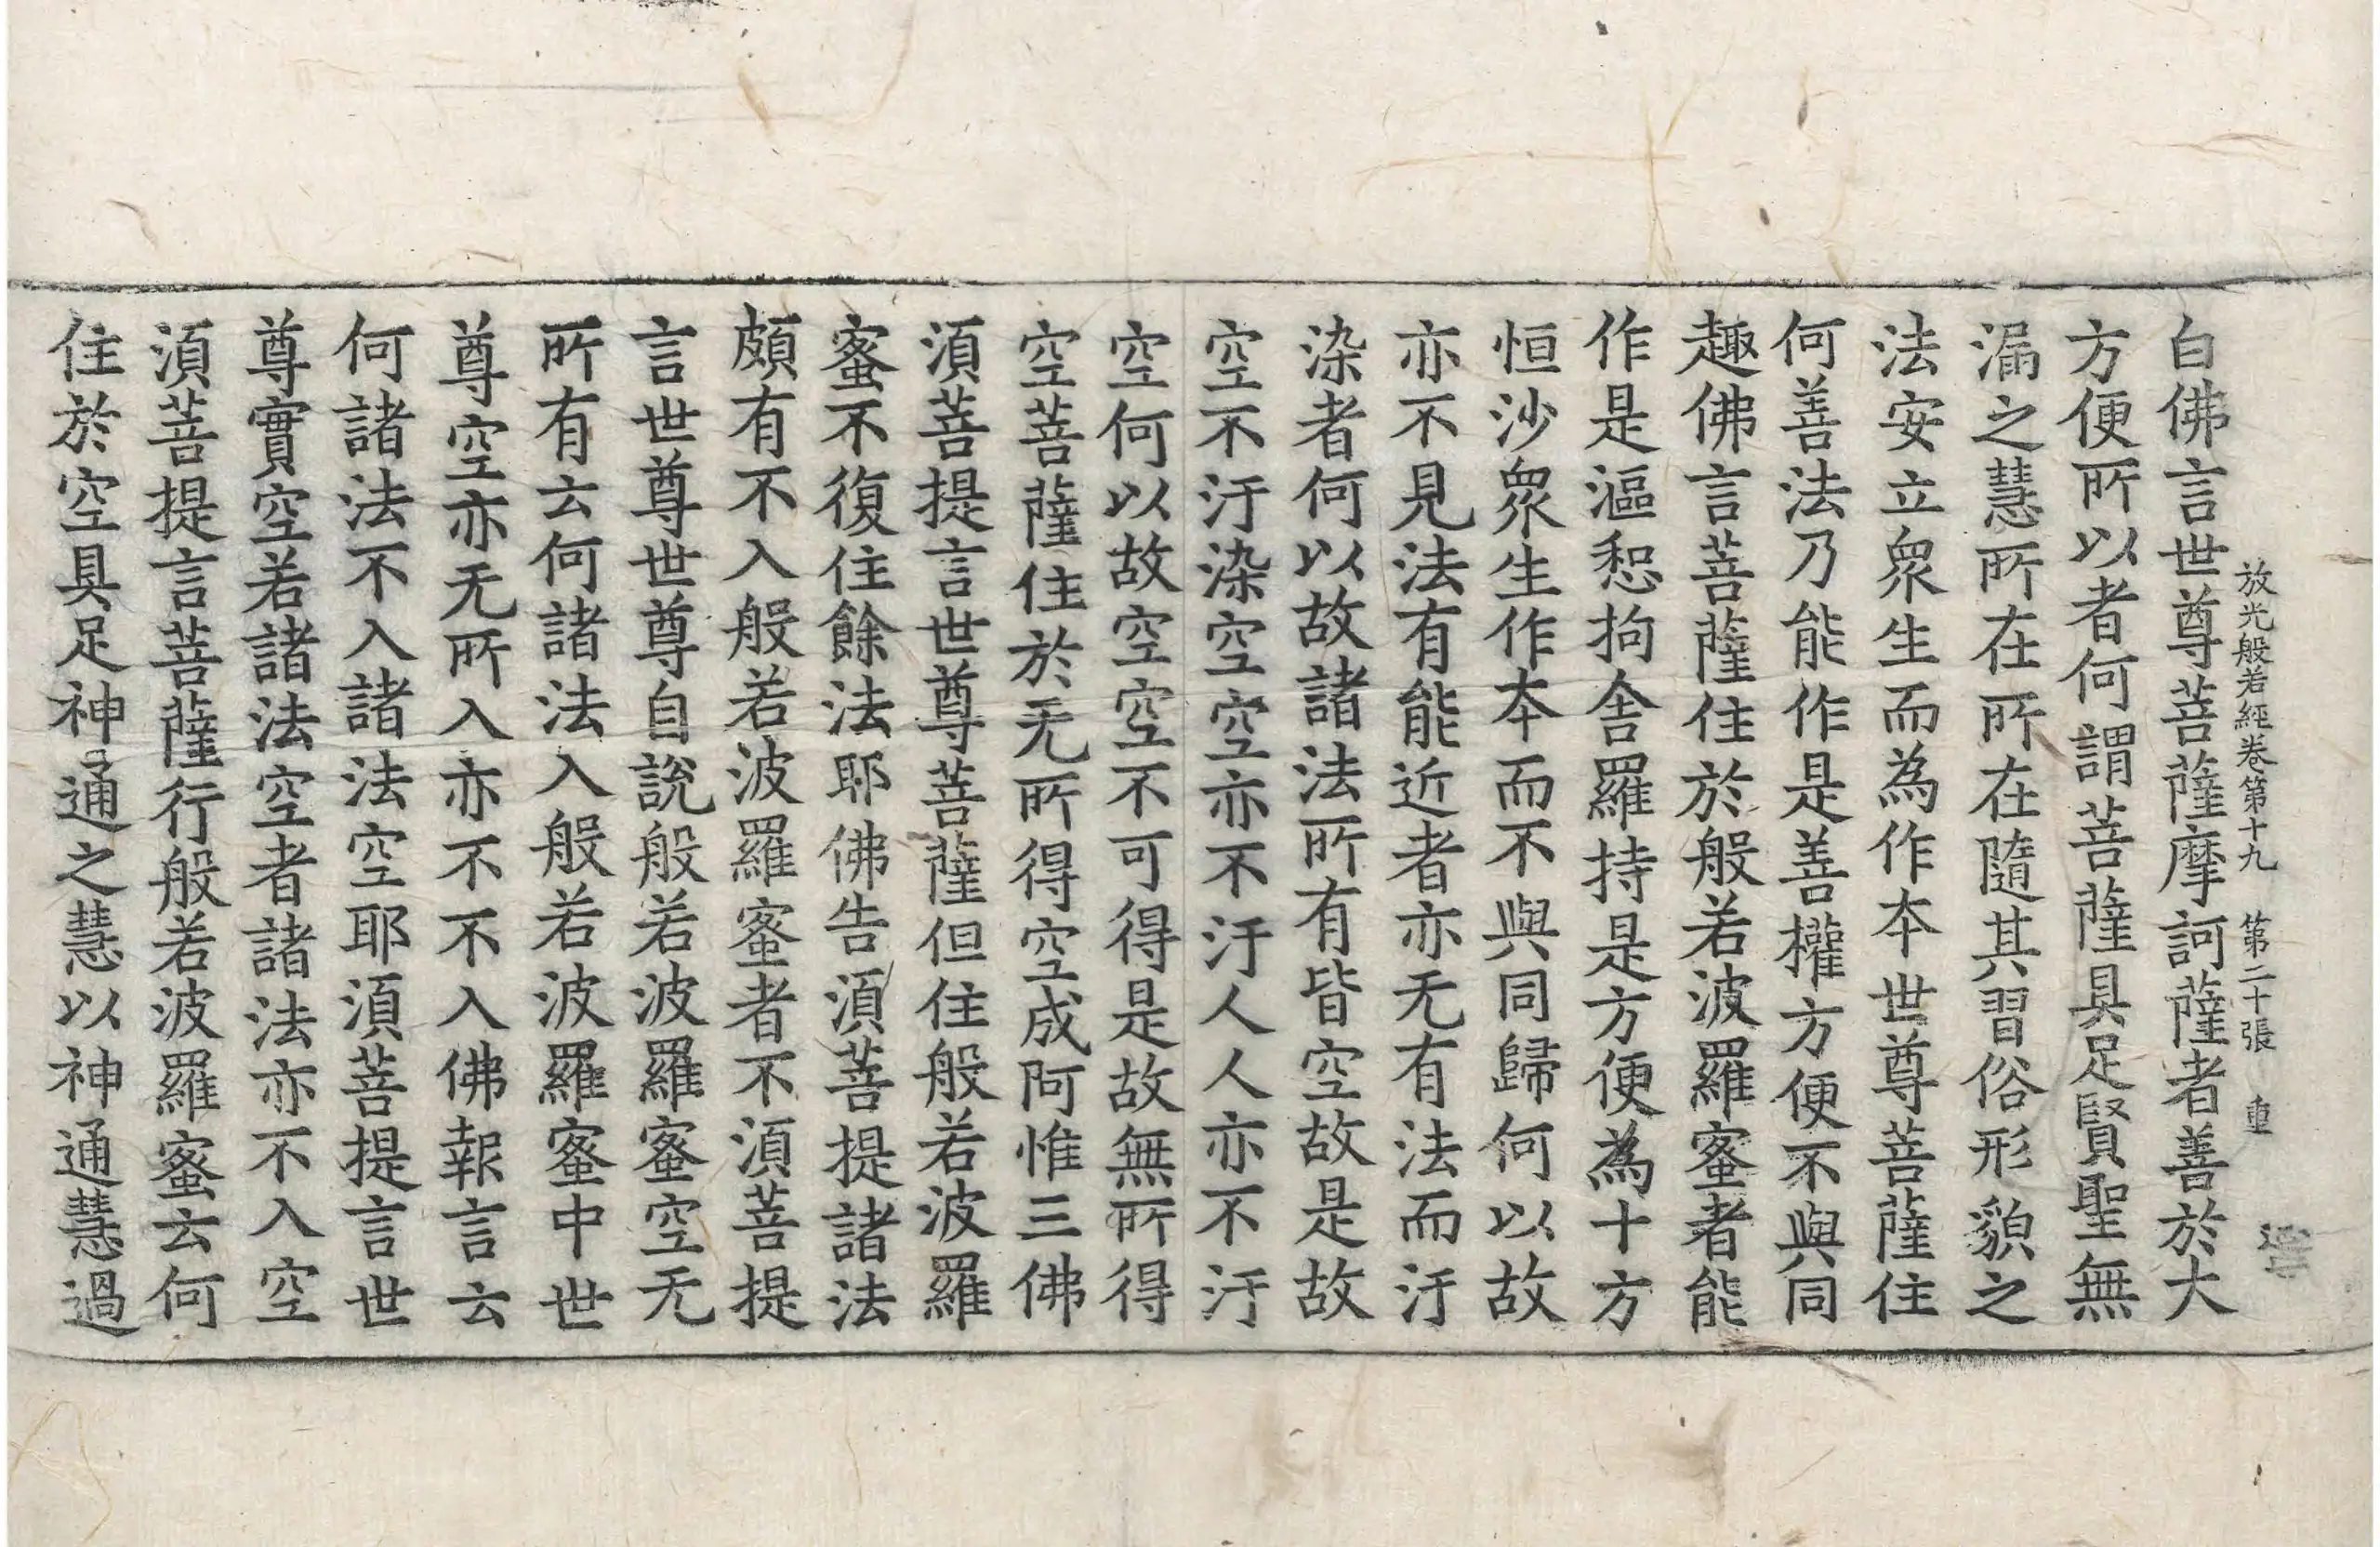 放光般若經卷第十九 第二十張 重
白佛言世尊菩薩摩訶薩者善於大
方便所以者何謂菩薩具足賢聖無
漏之慧所在所在隨其習俗形貌之
法安立衆生而為作本世尊菩薩住
何善法乃能作是善權方便不與同
趣佛言菩薩住於般若波羅蜜者能
作是漚惒拘舍羅持是方便為十方
恒沙衆生作本而不與同歸何以故
亦不見法有能近者亦无有法而汙
染者何以故諸法所有皆空故是故
空不汙染空空亦不汙人人亦不汙
空何以故空空不可得是故無所得
空菩薩住於无所得空成阿惟三佛
須菩提言世尊菩薩但住般若波羅
蜜不復住餘法耶佛告須菩提諸法
頗有不入般若波羅蜜者不須菩提
言世尊世尊自說般若波羅蜜空无
所有云何諸法入般若波羅蜜中世
尊空亦无所入亦不不入佛報言云
何諸法不入諸法空耶須菩提言世
尊實空若諸法空者諸法亦不入空
須菩提言菩薩行般若波羅蜜云何
住於空具足神通之慧以神通慧過